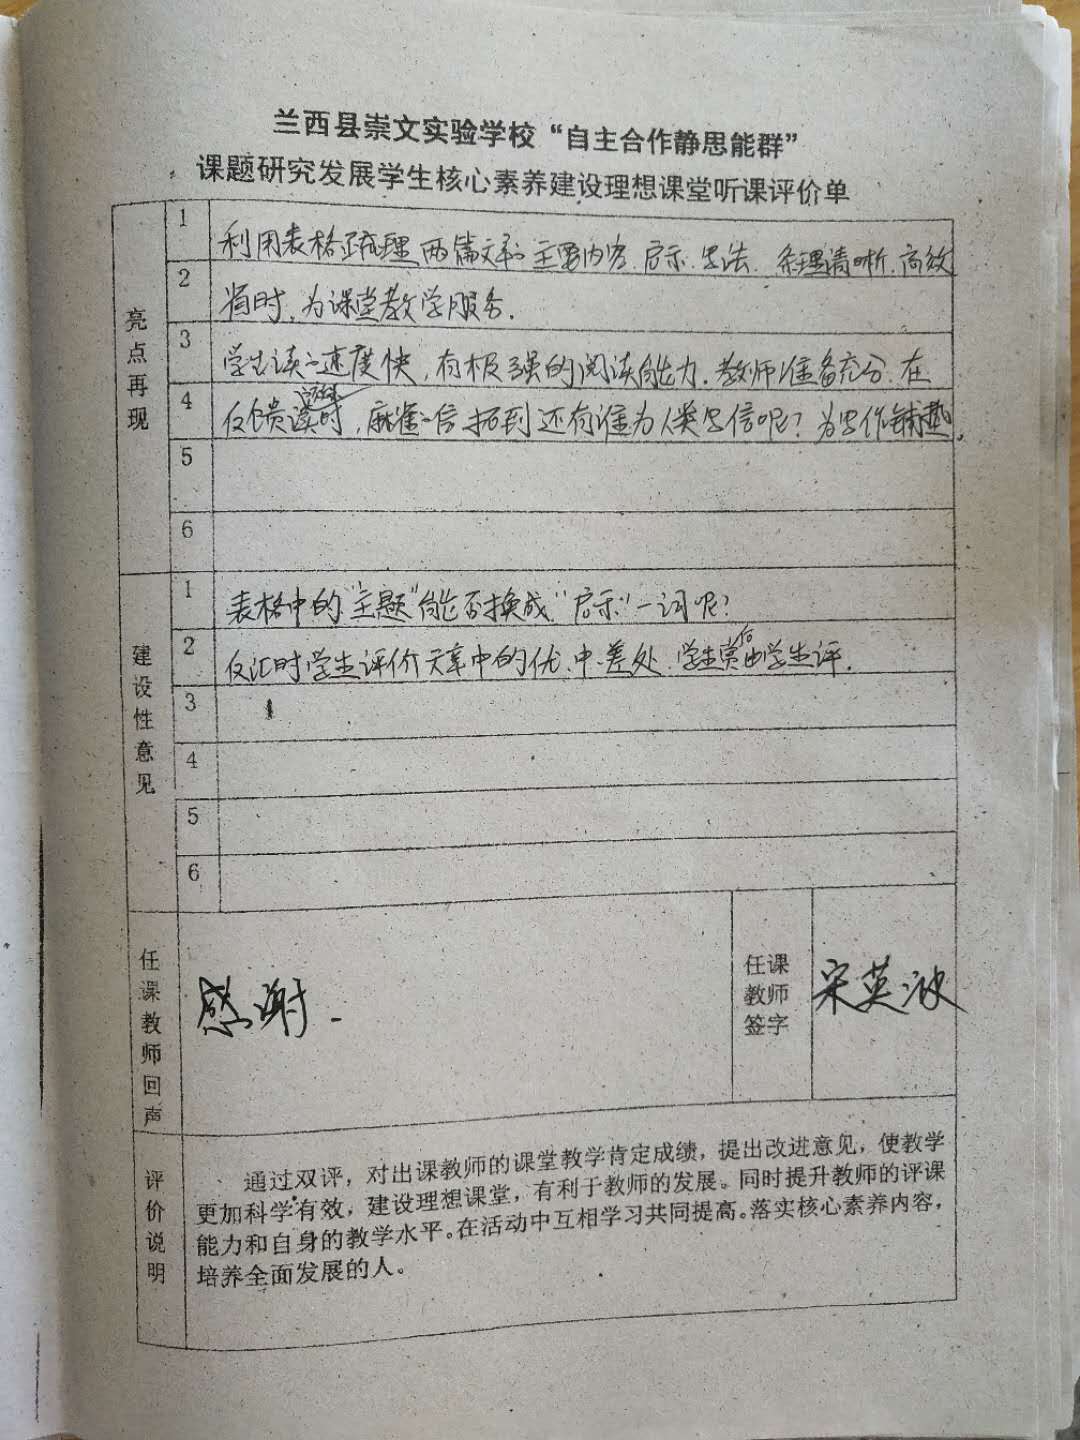 兰西县崇文实验学校“自主合作静思能群”
课题研究发展学生核心素养建设理想课堂听课评价单
亮点再现
1 利用表格梳理两篇文章主要内容.启示.写法.条理清晰.高效
2 省时.为课堂教学服务.
3 学生读速度快,有极强的阅读能力.教师准备充分.在
4 反馈时,麻雀信报到还有谁为人类写信呢?为写作铺垫.
5
6
建设性意见
1 表格中的“主题”能否换成“启示”一词呢?
2 反汇时学生评价文章中的优.中.差处.学生赏后由学生评.
3
4
5
6
任课教师回声
感谢.
任课
教师
签字
宋英波
评价说明
通过双评，对出课教师的课堂教学肯定成绩，提出改进意见，使教学
更加科学有效，建设理想课堂，有利于教师的发展。同时提升教师的评课
能力和自身的教学水平。在活动中互相学习共同提高。落实核心素养内容，
培养全面发展的人。